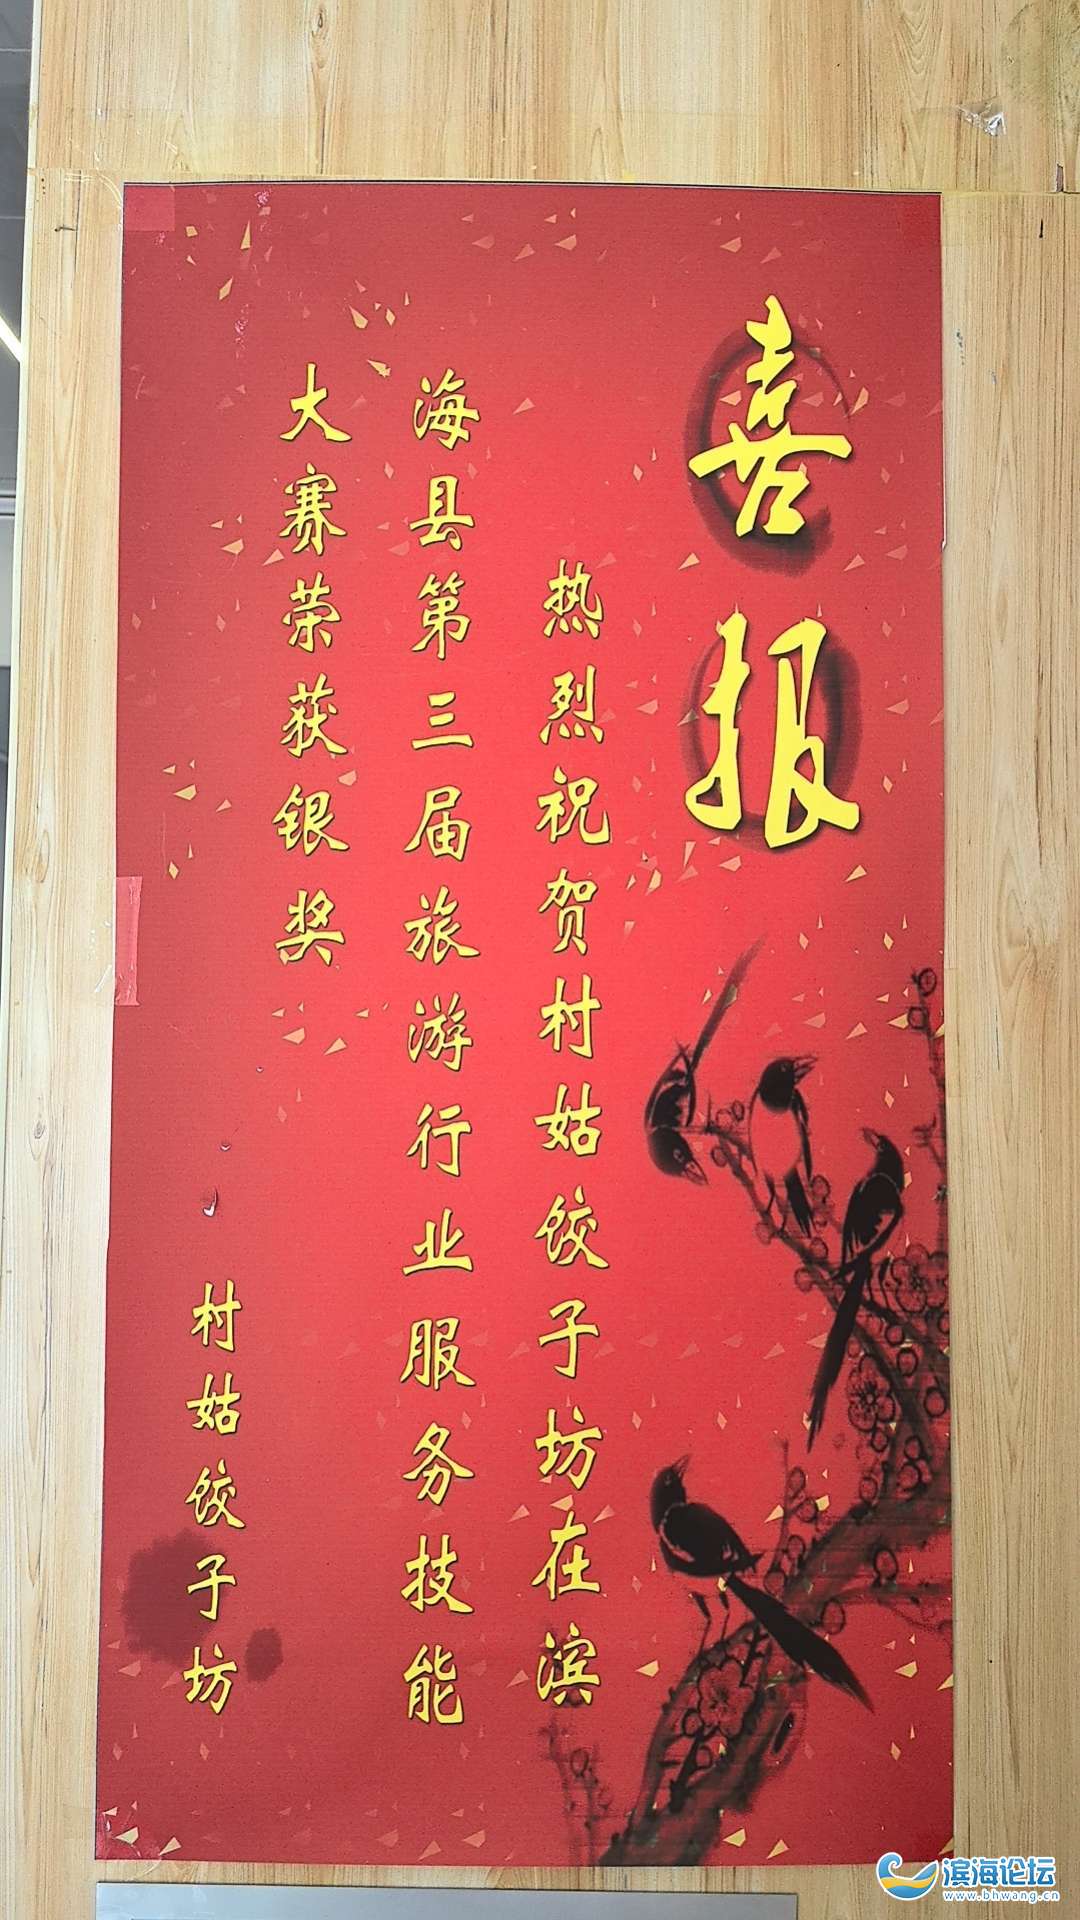 喜报
热烈祝贺村姑饺子坊在滨
海县第三届旅游行业服务技能
大赛荣获银奖
村姑饺子坊
滨海论坛
www.bhwang.cn